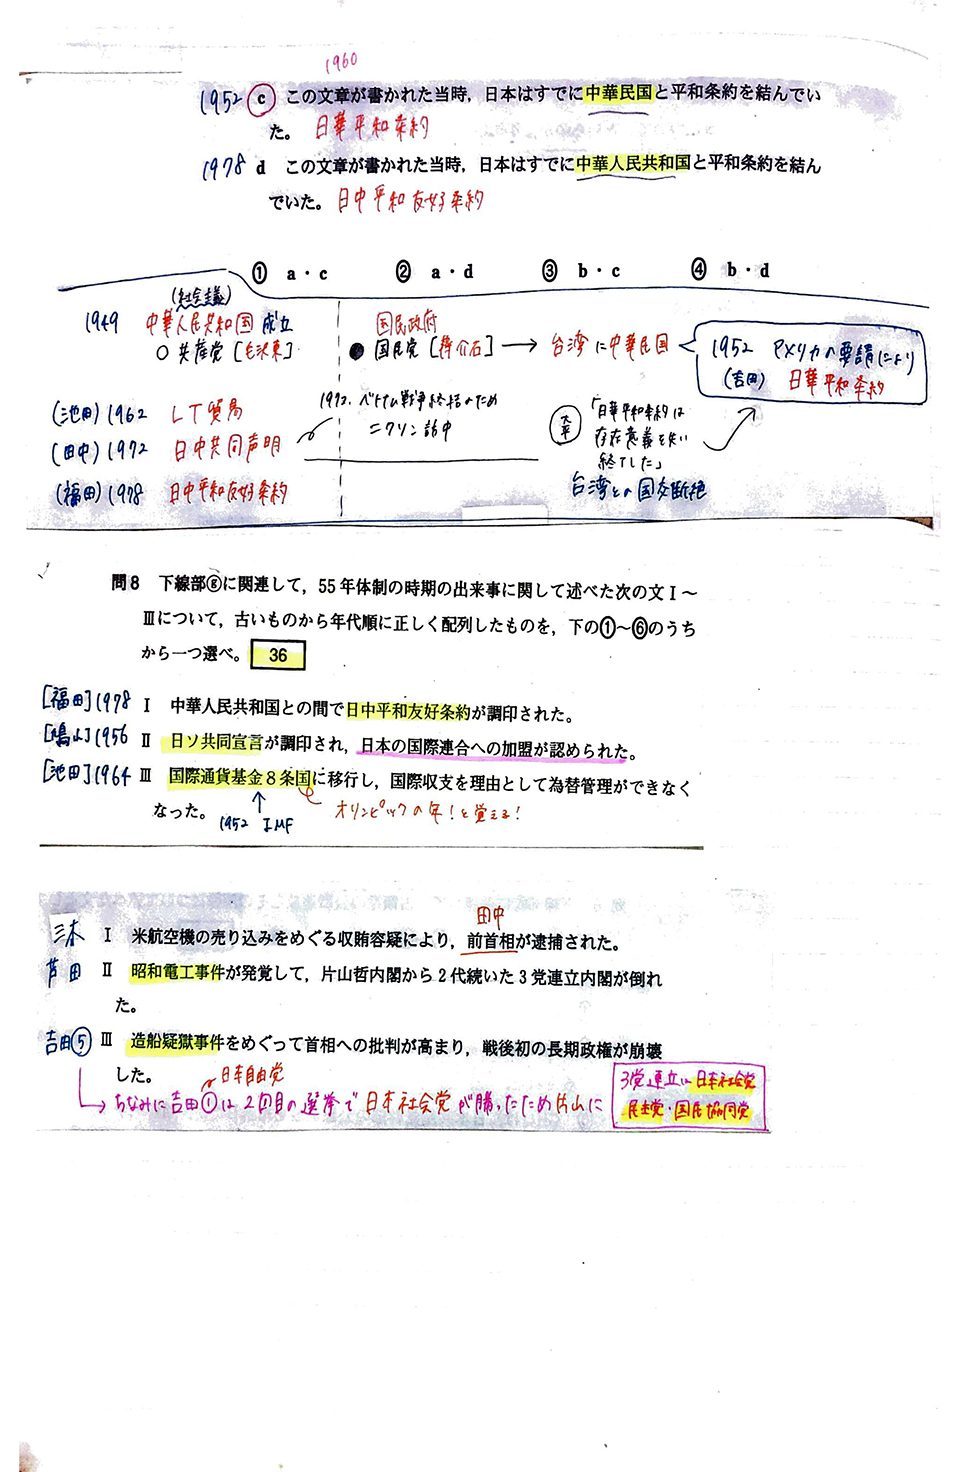 1960
1952 ⓒ この文章が書かれた当時，日本はすでに中華民国と平和条約を結んでい
た。 日華平和条約
1978 d この文章が書かれた当時，日本はすでに中華人民共和国と平和条約を結ん
でいた。 日中平和友好条約
① a・c ② a・d ③ b・c ④ b・d
(社会主義)
1949 中華人民共和国 成立
○ 共産党 [毛沢東]
国民政府
● 国民党 [蒋介石] → 台湾に中華民国
1952 アメリカの要請により
(吉田) 日華平和条約
(池田) 1962 LT貿易
(田中) 1972 日中共同声明
(福田) 1978 日中平和友好条約
1972. ベトナム戦争終結のため
ニクソン訪中
大平
「日華平和条約は
存在意義を失い
終了した」
台湾との国交断絶
問8 下線部ⓖに関連して，55年体制の時期の出来事に関して述べた次の文Ⅰ～
Ⅲについて，古いものから年代順に正しく配列したものを，下の①～⑥のうち
から一つ選べ。 36
[福田] 1978 Ⅰ 中華人民共和国との間で日中平和友好条約が調印された。
[鳩山] 1956 Ⅱ 日ソ共同宣言が調印され，日本の国際連合への加盟が認められた。
[池田] 1964 Ⅲ 国際通貨基金8条国に移行し，国際収支を理由として為替管理ができなく
なった。 1952 IMF オリンピックの年！と覚える！
田中
三木 Ⅰ 米航空機の売り込みをめぐる収賄容疑により，前首相が逮捕された。
芦田 Ⅱ 昭和電工事件が発覚して，片山哲内閣から2代続いた3党連立内閣が倒れ
た。
吉田⑤ Ⅲ 造船疑獄事件をめぐって首相への批判が高まり，戦後初の長期政権が崩壊
した。 日本自由党
→ ちなみに吉田①は2回目の選挙で日本社会党が勝ったため片山に
3党連立は日本社会党
民主党・国民協同党